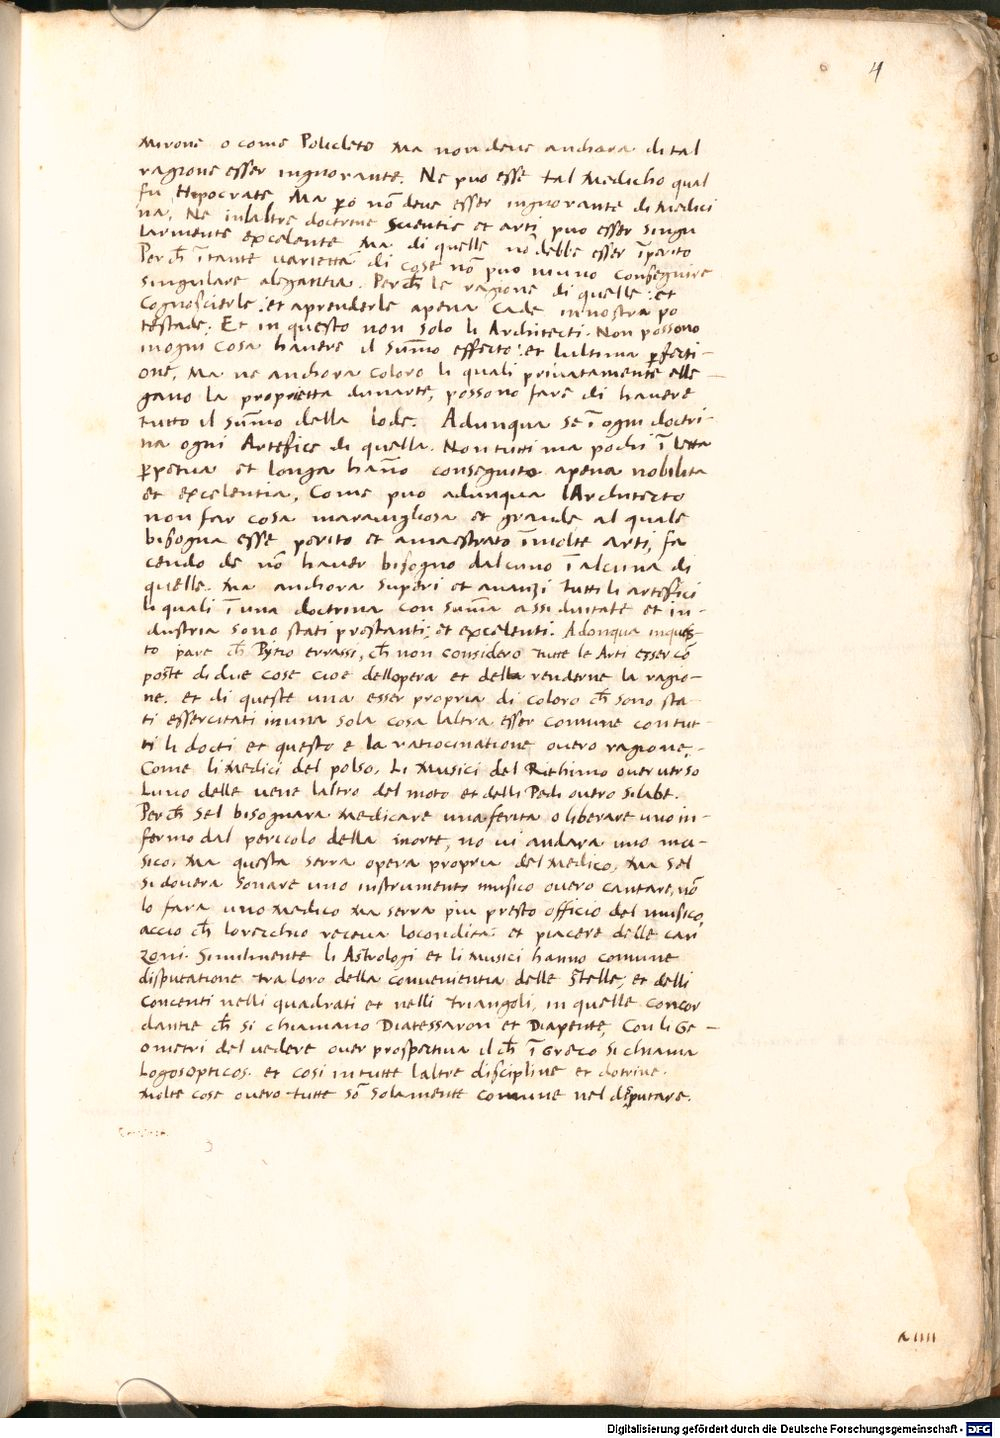 4
Mirone o come Policleto Ma non deue anchora di tal
ragione esser ingnorante. Ne puo esse tal Medicho qual
fu Hepocrate Ma p̱o nō deue esser ingnorante di Medici
na, Ne in laltre doctrine Scientie et arti puo esser singu
larmente excelente Ma di quelle nō debbe esser īperito
Perch̄ ī tante uarietta di cose nō puo niuno conseguire
singulare alegantia. Perch̄ le ragione di quelle: et
Cognoscierle: et aprenderle apena Cade in nostra po
testade: Et in questo non solo li Architecti. Non possono
in ogni cosa hauere il sūmo effecto: et lultima p̱fecti-
one, Ma ne anchora coloro li quali priuatamente elle-
gano la proprietta dunarte, possono fare di hauere
tutto il sūmo della lode. Adunqua se ī ogni doctri-
na ogni Artefice di quella. Non tutti ma pochi ī letta
p̱petua et longa hāno conseguito apena nobilita
et excelentia, Come puo adunqua lArchitecto
non far cosa marauigliosa et grande al quale
bisogna esse perito et amaestrato ī molte arti, fa
cendo de nō hauer bisogno dalcuno ī alcuna di
quelle. Ma anchora superi et auanzi tutti li artefici
li quali ī una doctrina con sūma assiduitate et in-
dustria sono stati prestanti: et excelenti. Adonqua in ques-
to pare ch̄ Pytio errassi, ch̄ non considero tutte le Arti esser cō
poste di due cose cioe dellopera et della renderne la ragio-
ne. et di queste una esser propria di coloro ch̄ sono sta-
ti essercitati in una sola cosa laltra esser comune con tut-
ti li docti et questo e la ratiocinatione ouero ragione.-
Come li Medici del polso, Li Musici del Rithimo ouer uerso
Luno delle uene laltro del moto et delli Pedi ouero silabe.
Perch̄ sel bisognara Medicare una ferita o liberare uno in-
fermo dal pericolo della morte, no ui andara uno mu-
sico, Ma questa serra opera propria del Medico, Ma sel
si douera sonare uno instrumento musico ouero cantare, nō
lo fara uno Medico Ma serra piu presto officio del musico,
accio ch̄ lorecchio receua iocondita: et piacere delle can
zoni. Similmente li Astrologi et li Musici hanno comune
disputatione tra loro della conuenientia delle Stelle, et delli
concenti nelli quadrati et nelli triangoli, in quelle concor
dantie ch̄ si chiamano Diatessaron et Diapente, Con li Ge-
ometri del uedere ouer prospectiua il ch̄ ī Greco si chiama
Logosopticos. et cosi in tutte laltre discipline et dotrine.
Molte cose ouero tutte sō solamente comune nel desputare.
a IIII
Digitalisierung gefördert durch die Deutsche Forschungsgemeinschaft - DFG